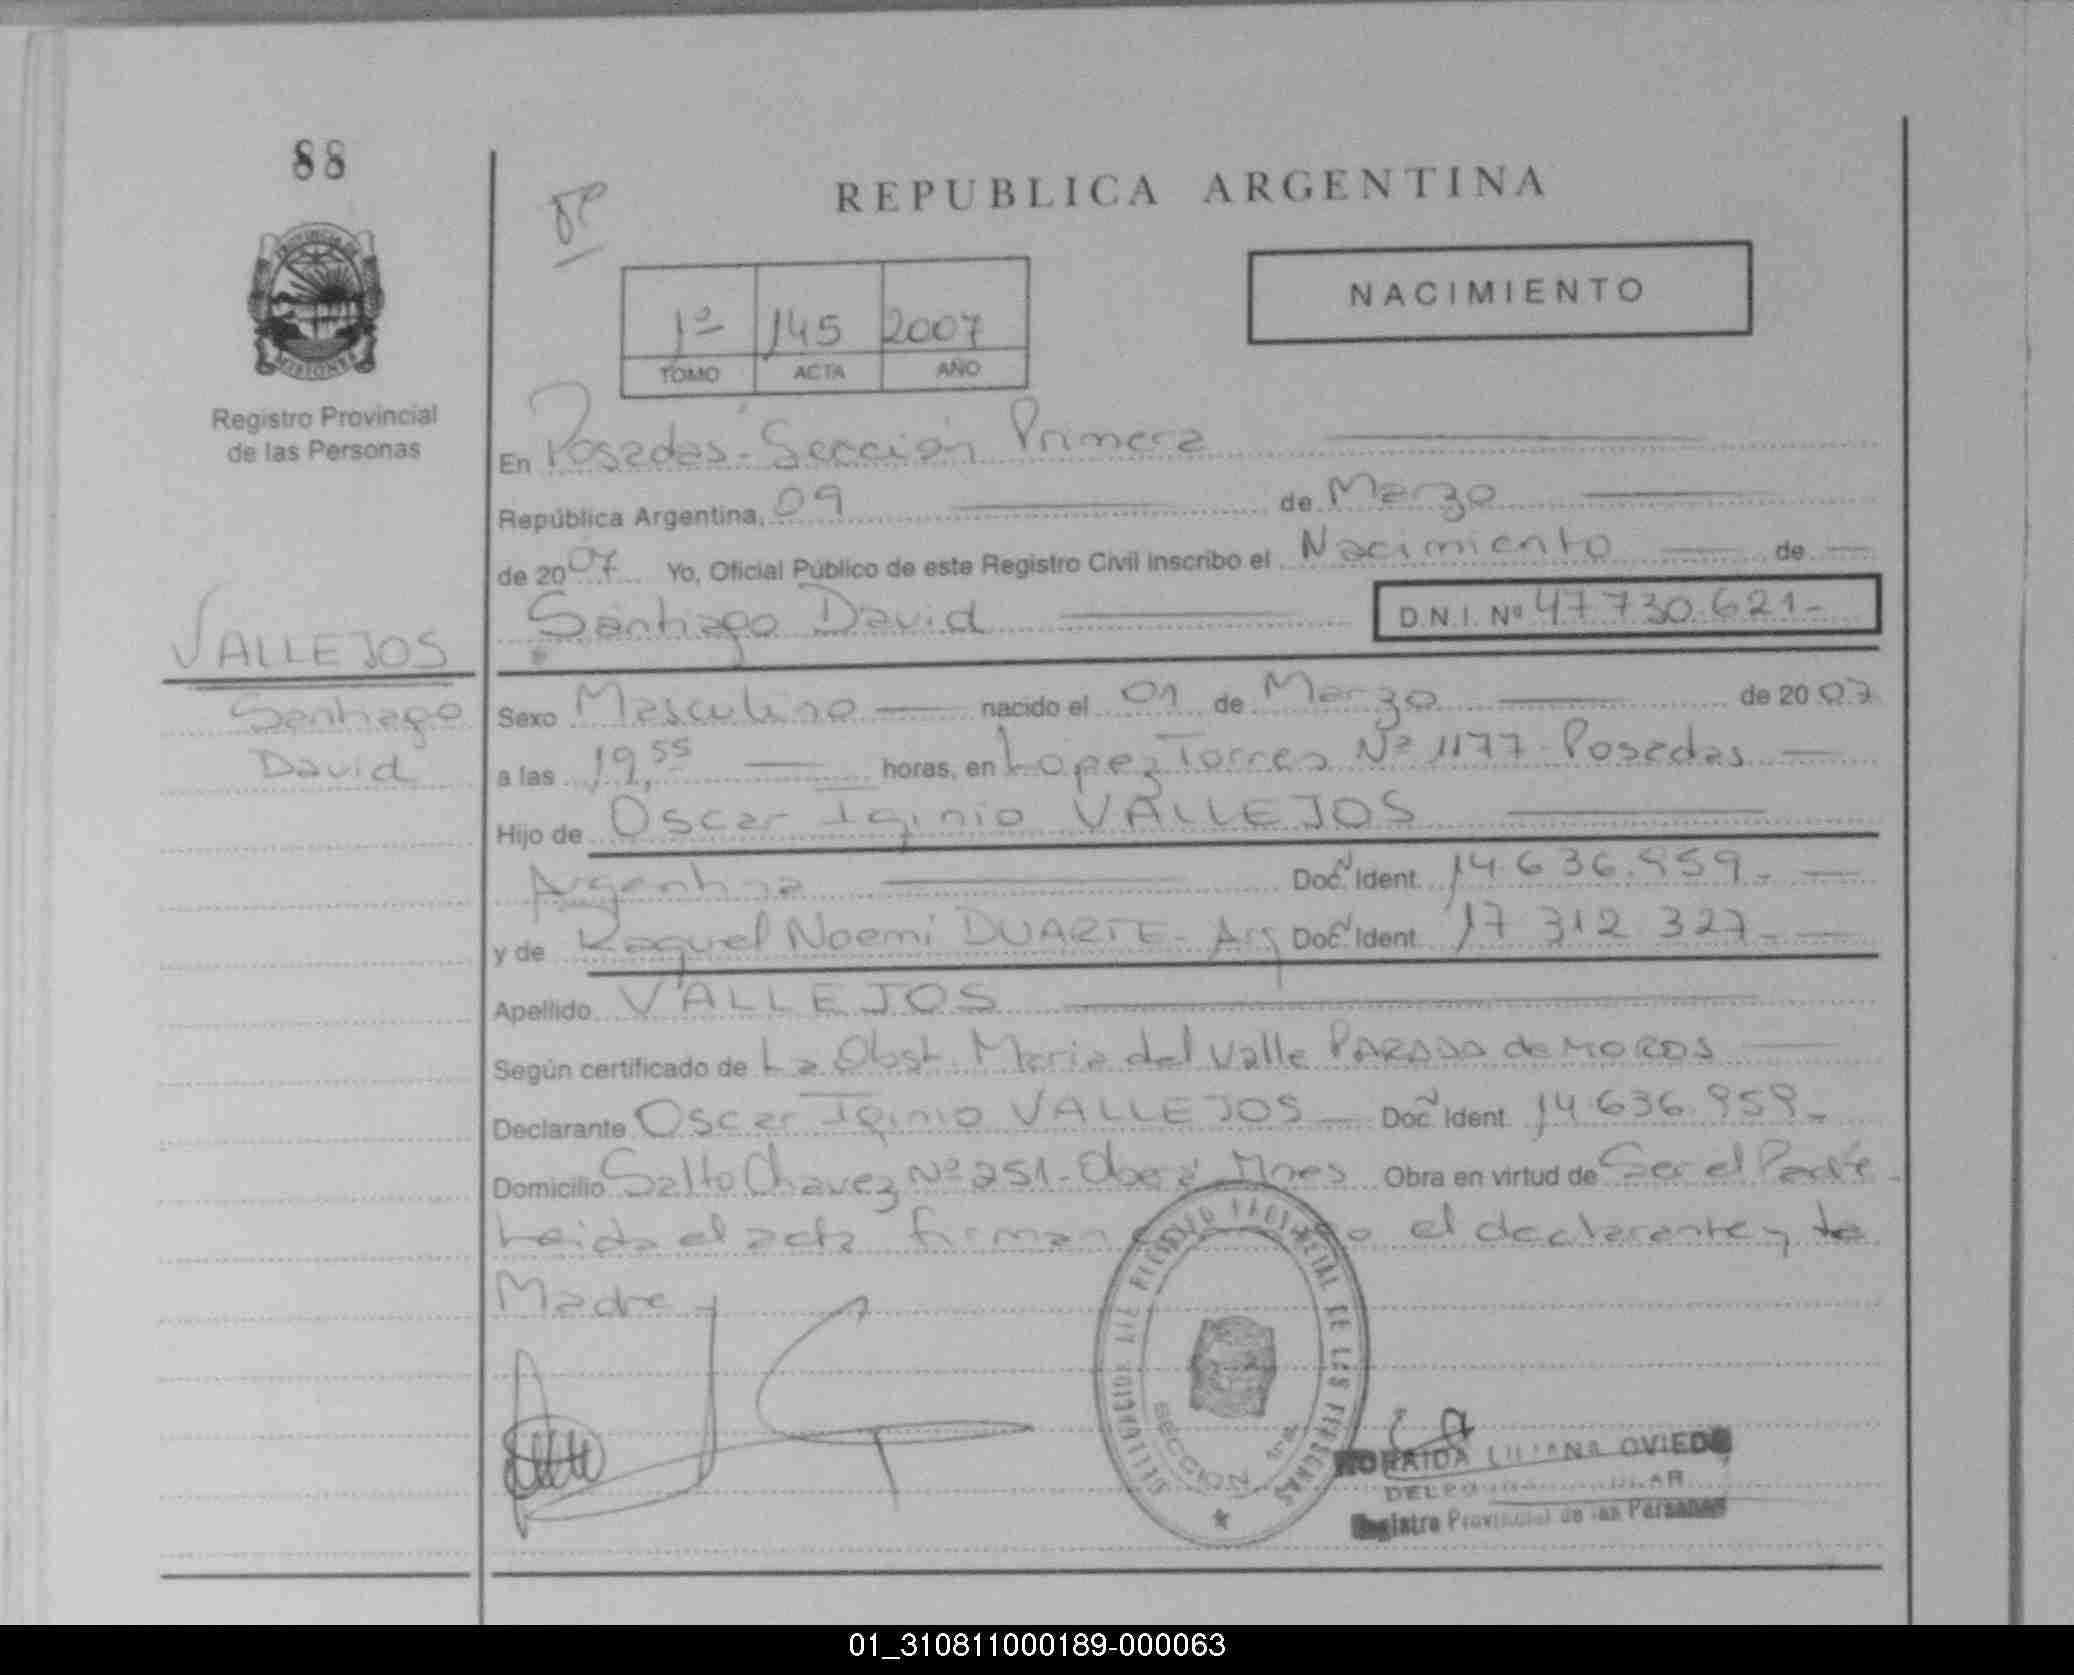 88
REPUBLICA ARGENTINA
NACIMIENTO
1º 145 2007
TOMO ACTA AÑO
PROVINCIA DE
MISIONES
Registro Provincial
de las Personas
En Posadas - Sección Primera
República Argentina, 09 de Marzo
de 2007 Yo, Oficial Público de este Registro Civil inscribo el Nacimiento de
Santiago David D.N.I. Nº 47.730.621-
VALLEJOS
Santiago
David
Sexo Masculino nacido el 01 de Marzo de 2007
a las 19,55 horas, en López Torres Nº 1177 - Posadas
Hijo de Oscar Iginio VALLEJOS
Argentina Doc. Ident. 14.636.959-
y de Raquel Noemi DUARTE - Arg Doc. Ident. 17 312 327-
Apellido VALLEJOS
Según certificado de La Obst. Maria del Valle PARADA de MOROS
Declarante Oscar Iginio VALLEJOS Doc. Ident. 14.636.959-
Domicilio Salto Chavez Nº 251 - Oberá Mnes Obra en virtud de Ser el Padre -
Leida el acta firman el declarante y la
Madre
REGISTRO PROVINCIAL DE LAS PERSONAS
SECCION 1ra.
LILIANA OVIEDO
Registro Provincial de las Personas
01_310811000189-000063